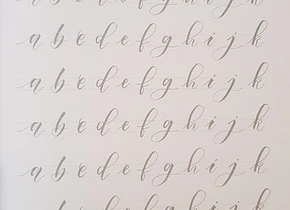 a b c d e f g h i j k
a b c d e f g h i j k
a b c d e f g h i j k
a b c d e f g h i j k
a b c d e f g h i j k
a b c d e f g h i j k